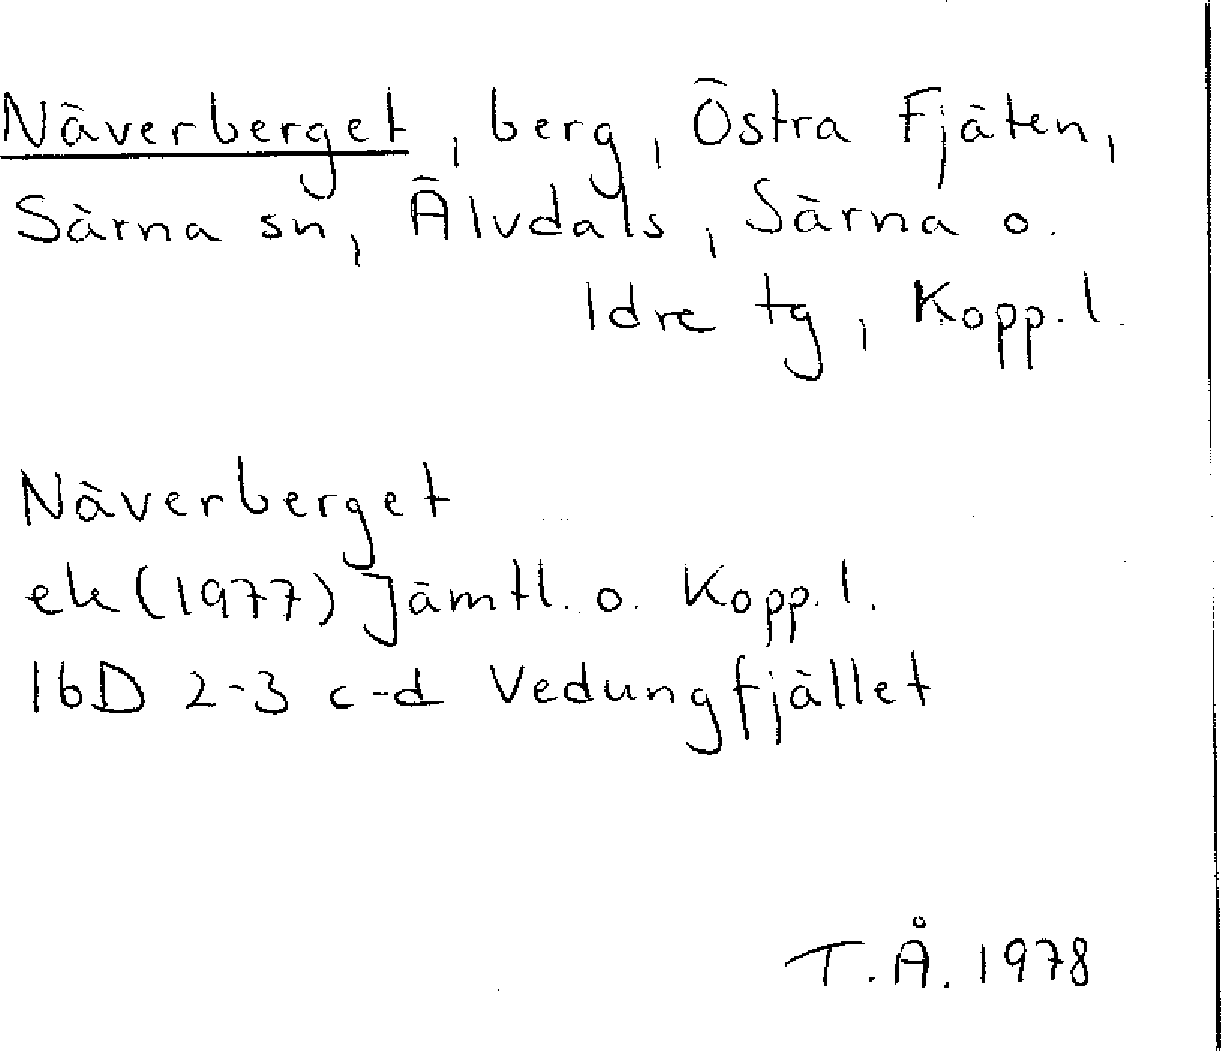 Näverberget, berg, Östra Fjäten,
Särna sn, Älvdals, Särna o.
Idre tg, Kopp. l.
Näverberget
ek (1977) Jämtl. o. Kopp. l.
16D 2-3 c-d Vedungfjället
T.Å. 1978